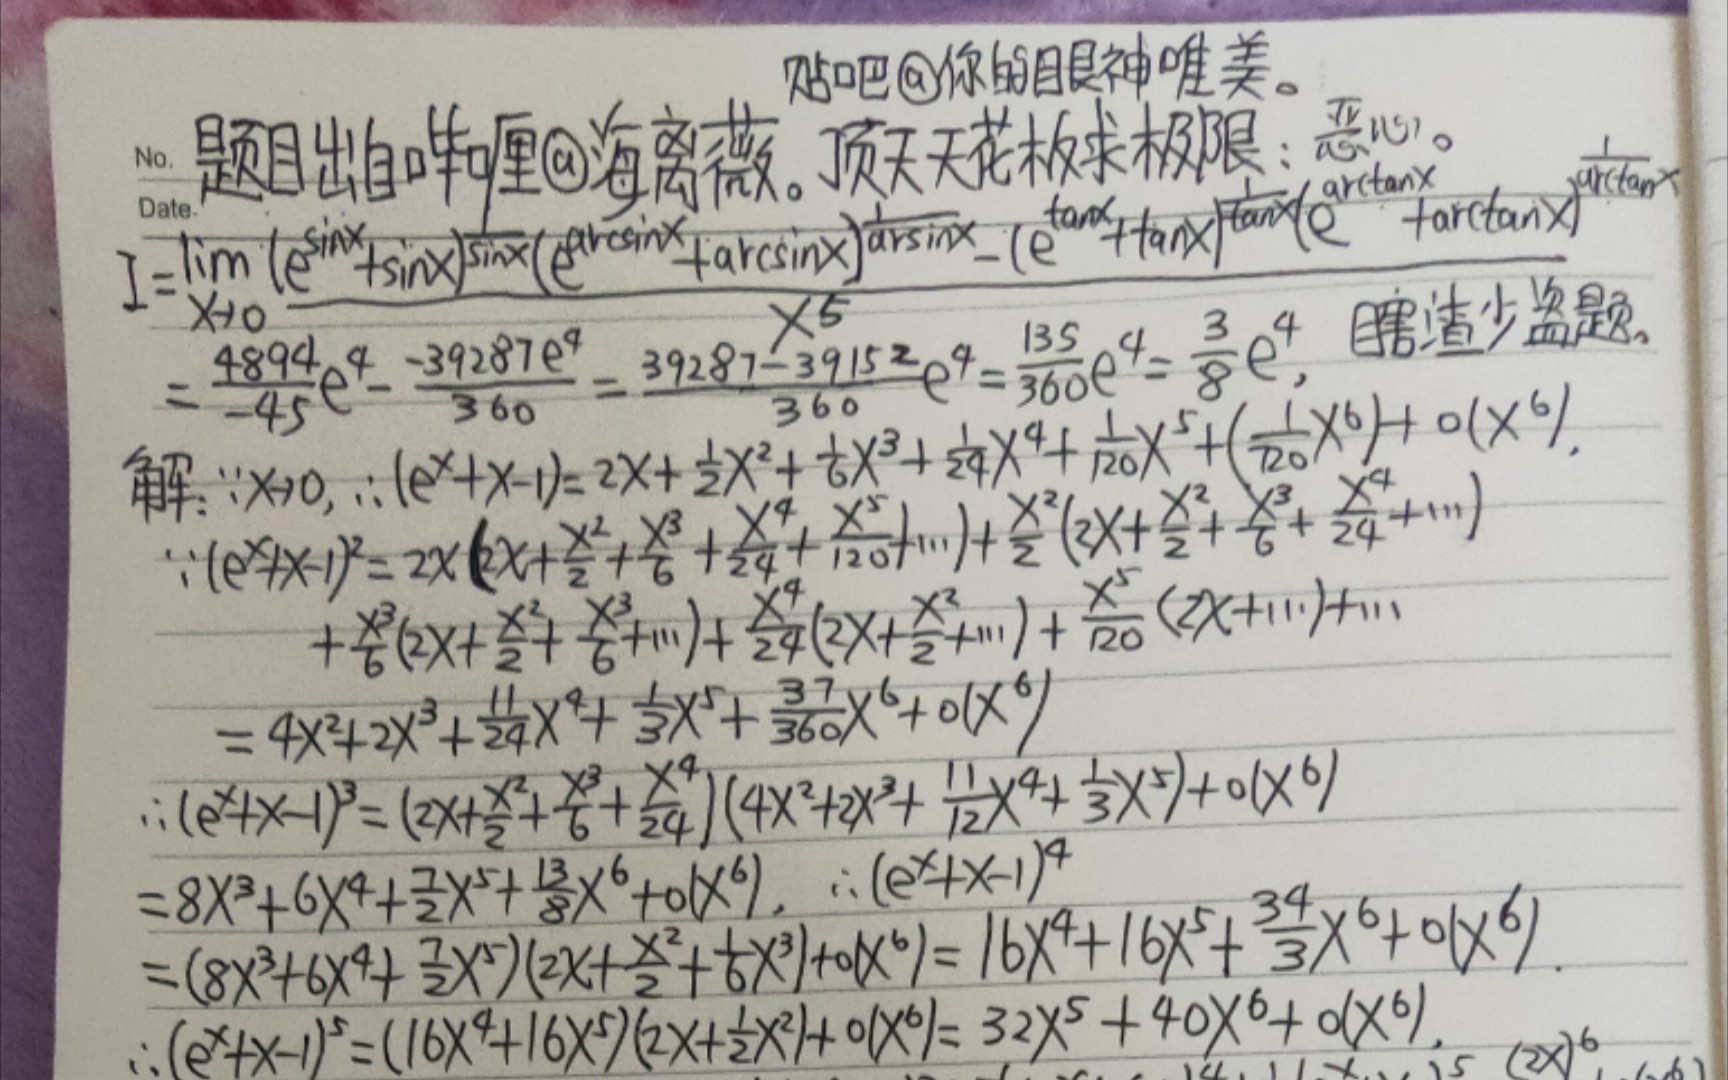 贴吧@你的眼神唯美。
No. 题目出自哔哩@海离薇。顶天天花板求极限:恶心。
Date.
I=lim(x→0) [(e^sinx+sinx)^(1/sinx)(e^arcsinx+arcsinx)^(1/arsinx)-(e^tanx+tanx)^(1/tanx)(e^arctanx+arctanx)^(1/arctanx)]/x^5
=4894/-45 e^4 - -39287e^4/360 = (39287-39152)/360 e^4 = 135/360 e^4 = 3/8 e^4, 瞎渣少盗题。
解:∵x→0,∴(e^x+x-1)=2x+1/2x^2+1/6x^3+1/24x^4+1/120x^5+(1/720x^6)+o(x^6).
∵(e^x+x-1)^2=2x(2x+x^2/2+x^3/6+x^4/24+x^5/120+…)+x^2/2(2x+x^2/2+x^3/6+x^4/24+…)
+x^3/6(2x+x^2/2+x^3/6+…)+x^4/24(2x+x^2/2+…)+x^5/120(2x+…)+…
=4x^2+2x^3+11/24x^4+1/3x^5+37/360x^6+o(x^6)
∴(e^x+x-1)^3=(2x+x^2/2+x^3/6+x^4/24)(4x^2+2x^3+11/12x^4+1/3x^5)+o(x^6)
=8x^3+6x^4+7/2x^5+13/8x^6+o(x^6). ∴(e^x+x-1)^4
=(8x^3+6x^4+7/2x^5)(2x+x^2/2+1/6x^3)+o(x^6)=16x^4+16x^5+34/3x^6+o(x^6).
∴(e^x+x-1)^5=(16x^4+16x^5)(2x+1/2x^2)+o(x^6)=32x^5+40x^6+o(x^6).
(2x)^6